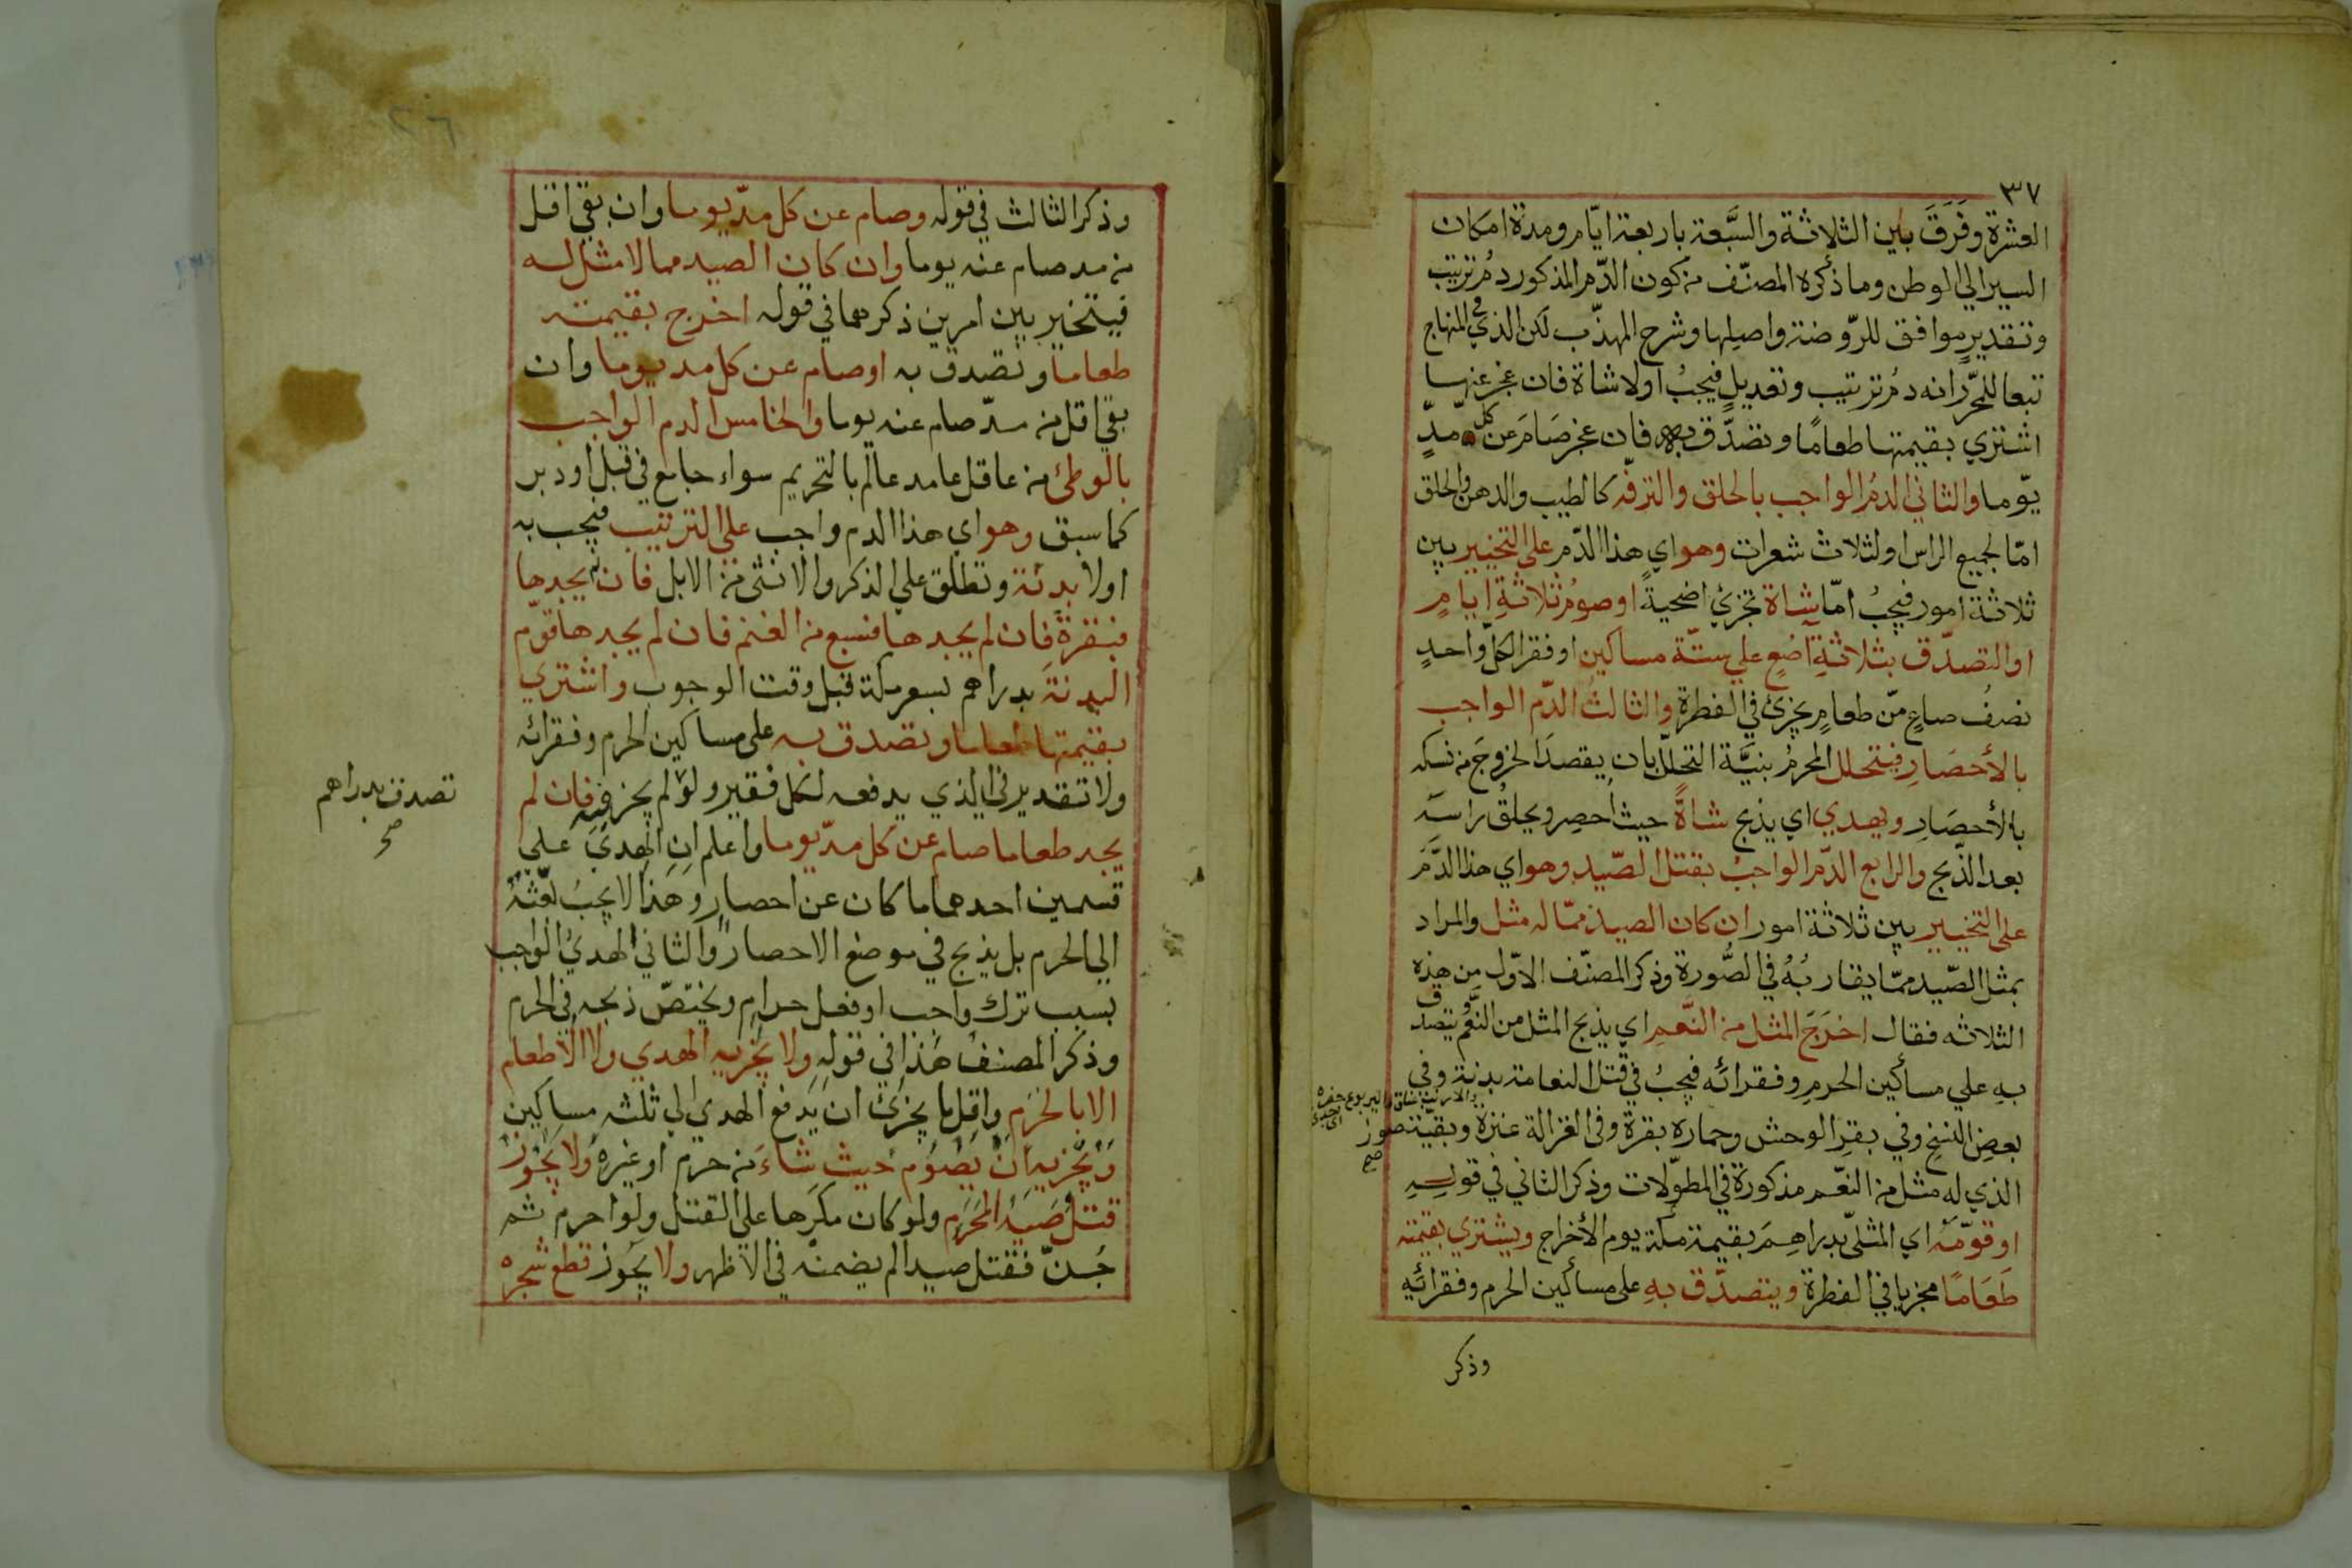 ٣٧
العشرة وفَرَقَ بين الثلاثة والسَّبعة باربعة ايّام ومدّة امكان
السير الي الوطن وما ذكره المصنّف من كون الدّم المذكور دمُ ترتيب
وتقديرٍ موافق للرّوضة واصلِها وشرح المهذّب لكن الذي في المنهاج
تبعا للمحرّر انه دمُ ترتيب وتعديلٍ فيجبُ اولا شاة فان عجز عنها
اشتري بقيمتها طعامًا وتصدّق به فان عجز صَامَ عن كل مدٍّ
يوما والثاني الدمُ الواجب بالحلق والترفّه كالطيب والدهن والحلق
امّا لجميع الراس او لثلاث شعرات وهو اي هذا الدّم علي التخيير بين
ثلاثة امور فيجبُ امّا شاة تجزئ اضحيةً او صومُ ثلاثةِ ايامٍ
او التصدّق بثلاثةِ اَصُعٍ علي ستّة مساكين او فقرا لكلّ واحدٍ
نصفُ صاعٍ مّن طعامٍ يجزئ في الفطرة والثالثُ الدّم الواجب
بالأحصَارِ فيتحلل المحرمُ بنيَّة التحلّل بان يقصدَ الخروجَ من نسكه
بالأحصَارِ ويهدي اي يذبح شاةً حيث اُحصِر ويحلقُ راسَه
بعد الذّبح والرابع الدّم الواجبُ بقتل الصّيد وهو اي هذا الدَّمَ
علي التخيير بين ثلاثة امور ان كان الصيد ممّا له مثل والمراد
بمثل الصّيد ممّا يقاربُهُ في الصُّورة وذكر المصنّف الاوّل من هذه
الثلاثه فقال اخرَجَ المثل من النَّعم اي يذبح المثل من النَّعَم يتصدّق
بهِ علي مساكين الحرمِ وفقرائه فيجبُ في قتل النعامة بدنة وفي
بعض النسخ وفي بقرِ الوحش وحماره بقرة وفي الغزالة عنزة وبقيّة صور
والارنب عناق واليربوع جفره
صح
الذي له مثل من النعّم مذكورة في المطوّلات وذكر الثاني في قولِهِ
او قوّمَه اي المثلي بدراهِمَ بقيمة مكّة يوم الأخراج ويشتري بقيمته
طَعَامًا مجزيا في الفطرة ويتصدّق بهِ علي مساكين الحرم وفقرائِهِ
وذكر
٢٦
وذكر الثالث في قوله وصام عن كل مدّ يوما وان بقي اقل
من مد صام عنه يوما وان كان الصيد مما لا مثل له
فيتخير بين امرين ذكرهما في قوله اخرج بقيمته
طعاما وتصدق به او صام عن كل مد يوما وان
بقي اقل من مدّ صام عنه يوما والخامس الدم الواجب
بالوطئ من عاقل عامد عالم بالتحريم سواء جامع في قبل او دبر
كما سبق وهو اي هذا الدم واجب علي الترتيب فيجب به
اولا بدنة وتطلق علي الذكر والانثي من الابل فان لم يجدها
فبقرة فان لم يجدها فسبع من الغنم فان لم يجدها قوّم
البدنة بدراهم بسعر مكة قبل وقت الوجوب واشتري
بقيمتها طعاما وتصدق به علي مساكين الحرم وفقرائه
ولا تقدير في الذي يدفعه لكل فقير ولو لم يجز فيه فان لم
تصدق بدراهم
صح
يجد طعاما صام عن كل مدّ يوما واعلم ان الهديَ علي
قسمين احدهما ما كان عن احصارٍ وهذا لا يجبُ بَعثهُ
الي الحرم بل يذبح في موضع الاحصار والثاني الهديُ الواجب
بسبب ترك واجب او فعل حرام ويختصّ ذبحه في الحرم
وذكر المصنفُ هذا في قولِهِ ولا يجزيه الهدي ولا الاطعام
الا بالحَرَم واقل ما يجزئ ان يدفع الهدي الي ثلثه مساكين
ويجزيه ان يصُوم حيث شاءَ من حرم او غيره ولا يجوز
قتلُ صَيد الحَرَم ولو كان مكرَها علي القتل ولو احرم ثم
جُنّ فقتل صيدا لم يضمنه في الاظهر ولا يجُوز قطع شجره